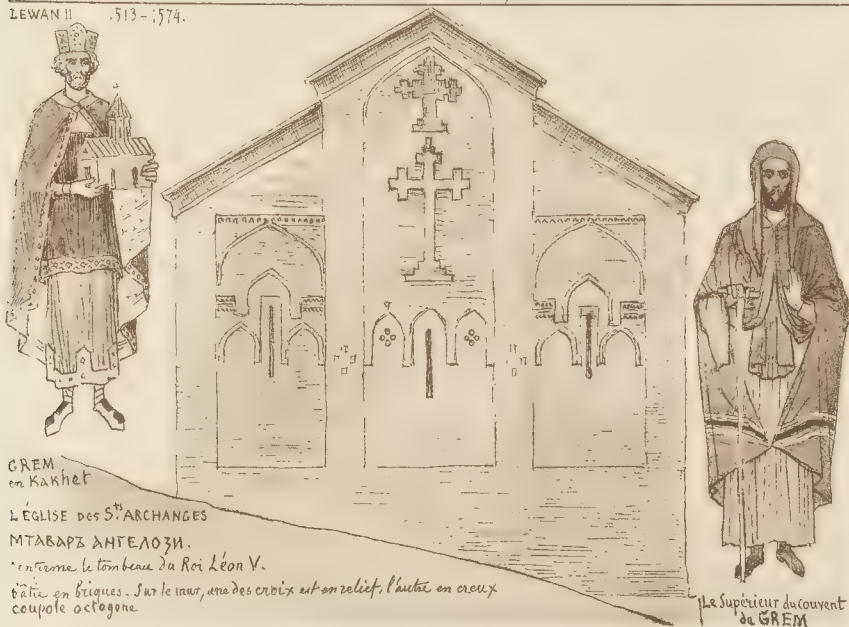 LEWAN II .513-1574.
GREM
en Kakhet
L'ÉGLISE DES Sts ARCHANGES
МТАВАРЪ АНГЕЛОЗИ.
enferme le tombeau du Roi Léon V.
bâtie en briques. Sur le mur, une des croix est en relief, l'autre en creux
coupole octogone
Le Supérieur du couvent
de GREM